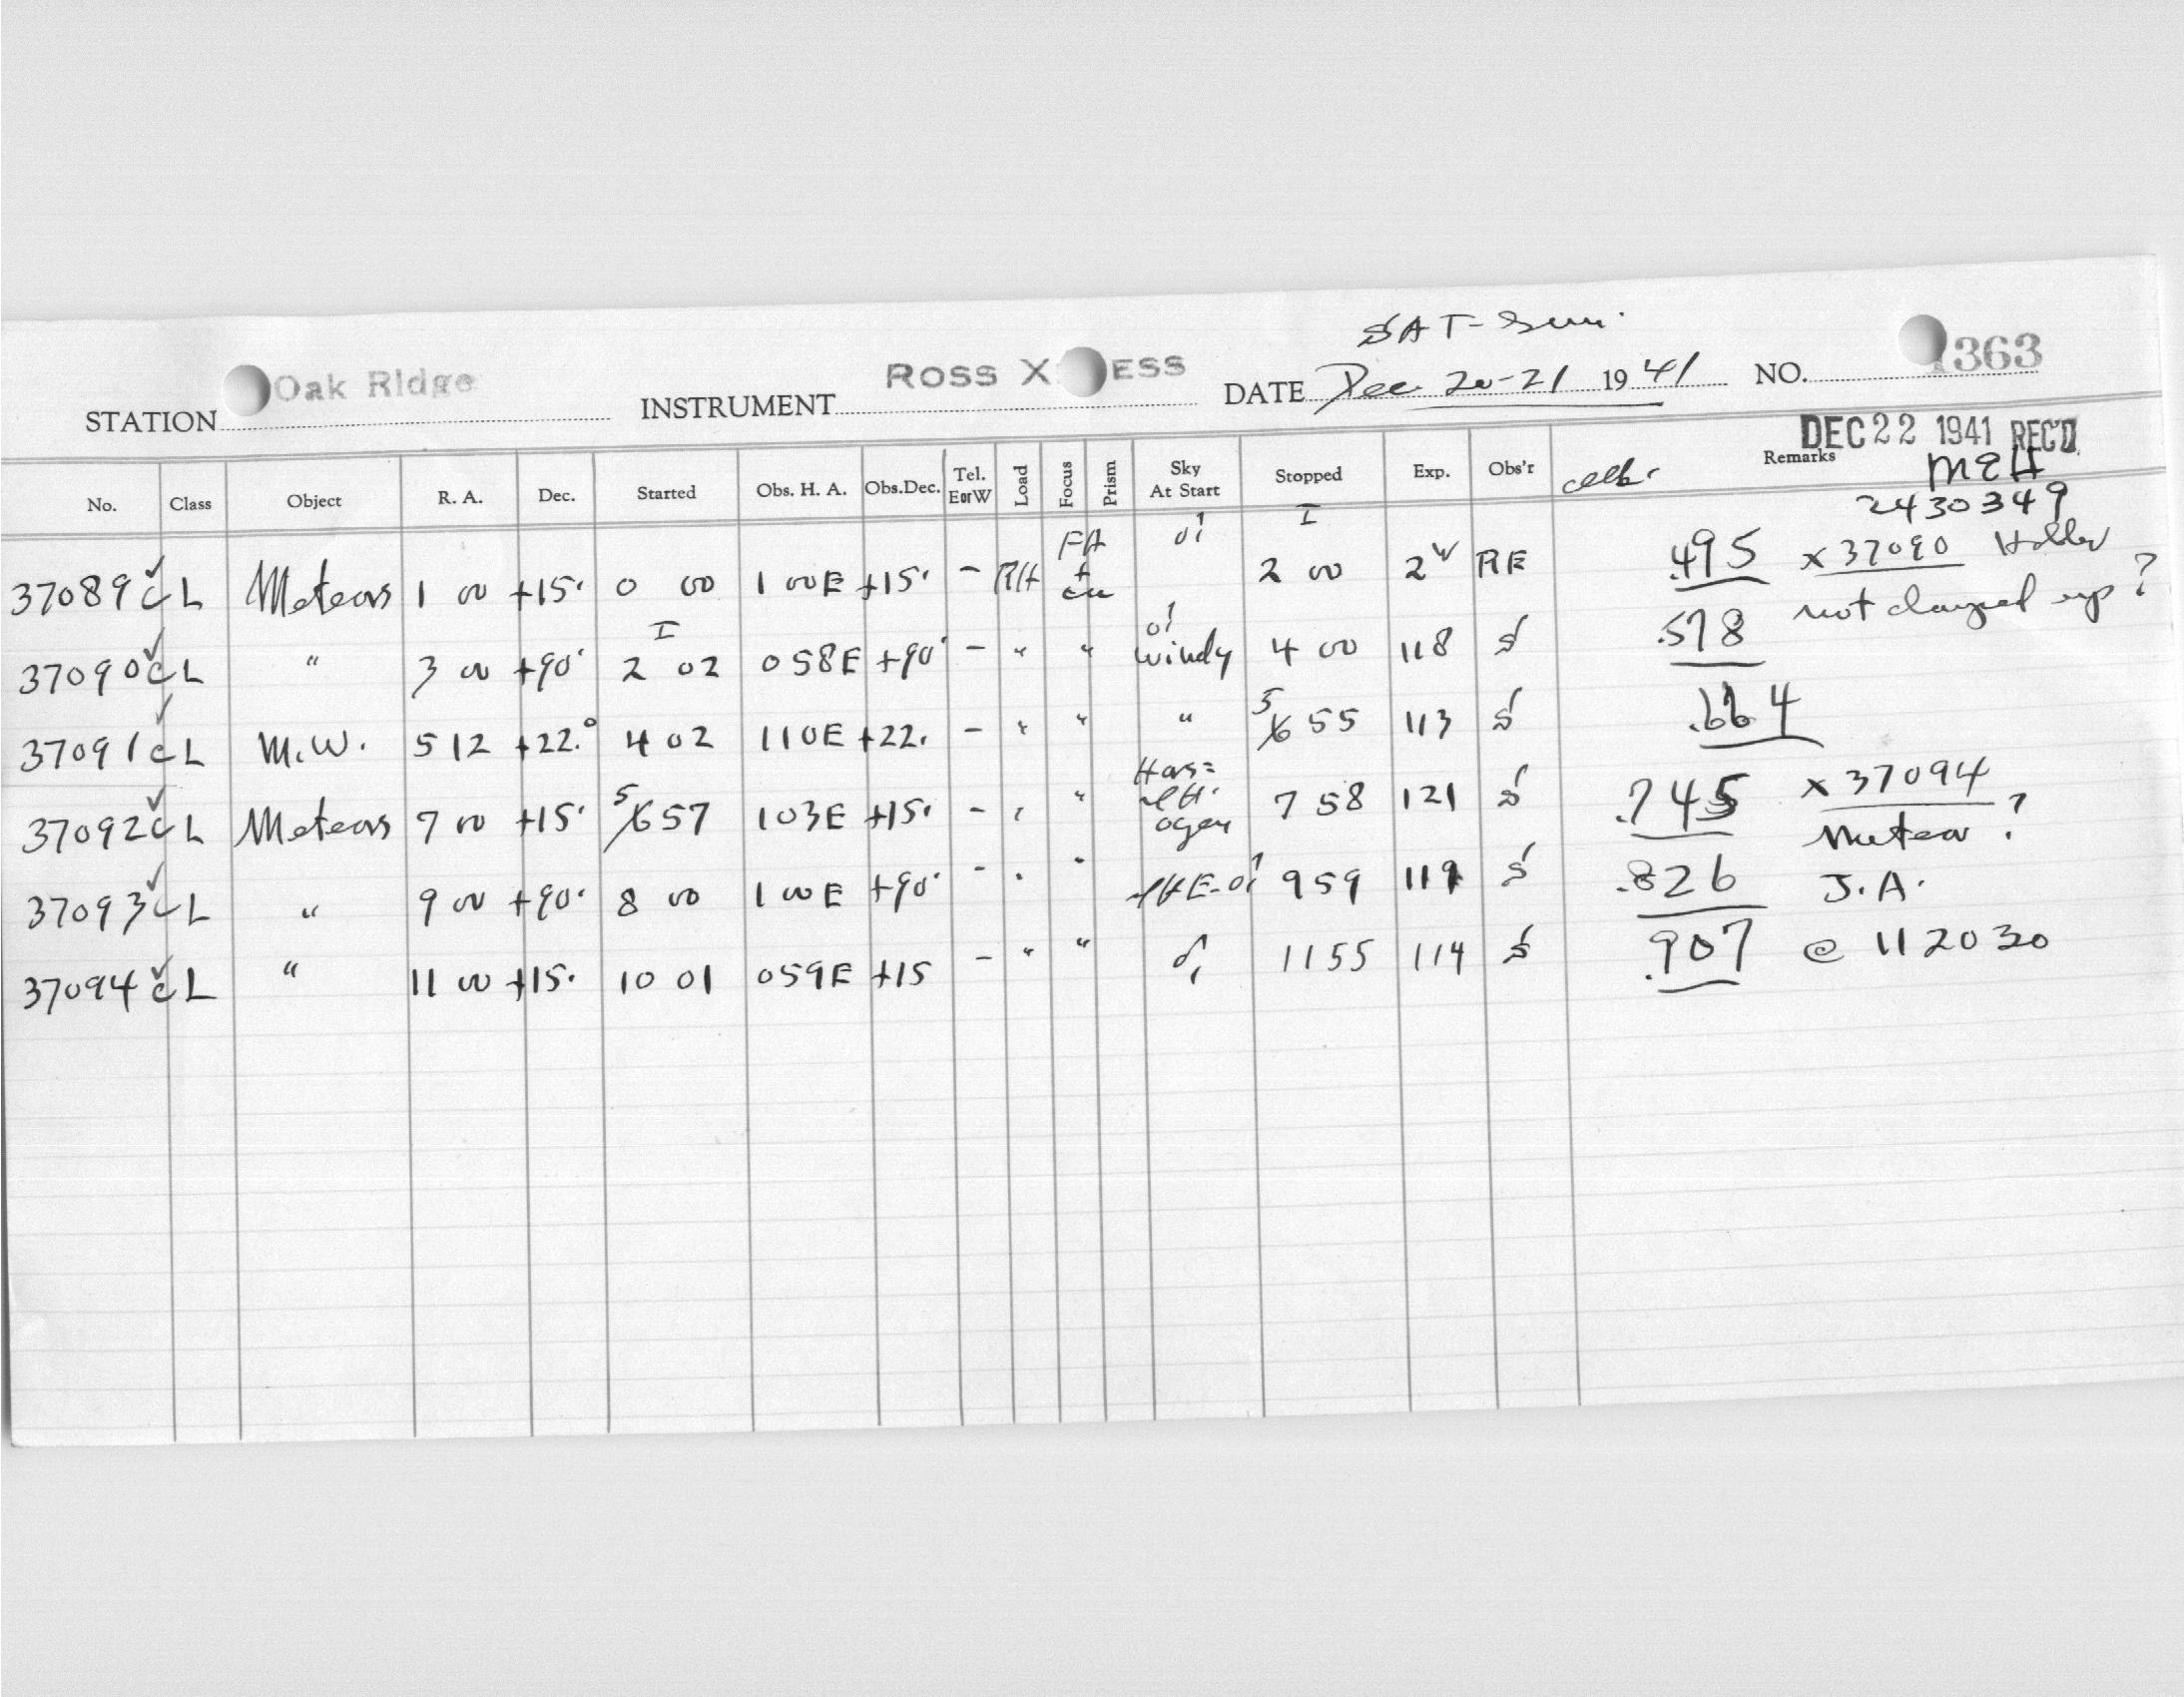 SAT-Sun.
STATION Oak Ridge INSTRUMENT ROSS X ESS DATE Dec. 20-21 1941 NO. 363
DEC 22 1941 REC'D
No. Class Object R. A. Dec. Started Obs. H. A. Obs.Dec. Tel. EorW Load Focus Prism Sky At Start Stopped Exp. Obs'r Remarks
MEH
2430349
37089 c L Meteors 1 00 +15° 0 00 1 00E +15° - RH FA + I 2 00 2 RE .495 x 37090 Holder
not clamped up?
37090 c L " 3 00 +90° I 2 02 058E +90° - " " windy 4 00 118 .578
37091 c L M.W. 5 12 +22.° 4 02 110E +22. - " " " 5 6 55 113 .664
37092 c L Meteors 7 00 +15° 5 657 103E +15° - " " 7 58 121 .745 x 37094
Meteor?
37093 c L " 9 00 +90° 8 00 1 00E +90° - " " 9 59 119 .826 J.A.
37094 c L " 11 00 +15° 10 01 059E +15 - " " 1155 114 .907 @ 112030